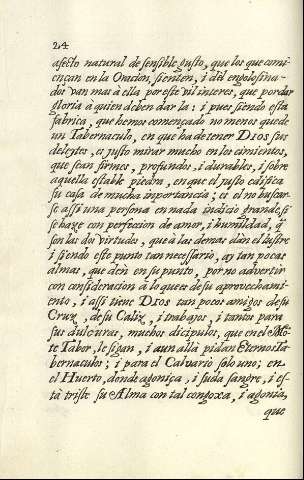 24
afecto natural de sensible gusto, que los que comi-
ençan en la Oracion, sienten, i del engolosina-
dos van mas à ella por este vil interes, que por dar
gloria a quien deben dar la: i pues siendo esta
fabrica, que hemos començado no menos que de
un Tabernaculo, en que ha de tener DIOS sus
deleytes, es justo mirar mucho en los cimientos,
que sean firmes, profundos, i durables, i sobre
aquella estable piedra, en que el justo edifica
su casa de mucha importancia; es el no buscar-
se assi una persona en nada indicio grande, si
se haze con perfeccion de amor, i humildad, q̃
son las dos virtudes, que à las demas dàn el lustre
i siendo este punto tan necessario, ay tan pocas
almas, que dèn en su punto, por no advertir
con consideracion à lo que es de su aprovechami-
ento, i assi tiene DIOS tan pocos amigos de su
Cruz, de su Caliz, i trabajos, i tantos para
sus dulçuras, muchos dicipulos, que en el Mõ-
te Tabor, le sigan, i aun allà pidan Eternos Ta-
bernaculos; i para el Calvario solo uno; en
el Huerto, donde agoniça, i suda sangre, i es-
tà triste su Alma con tal congoxa, i agonia,
que